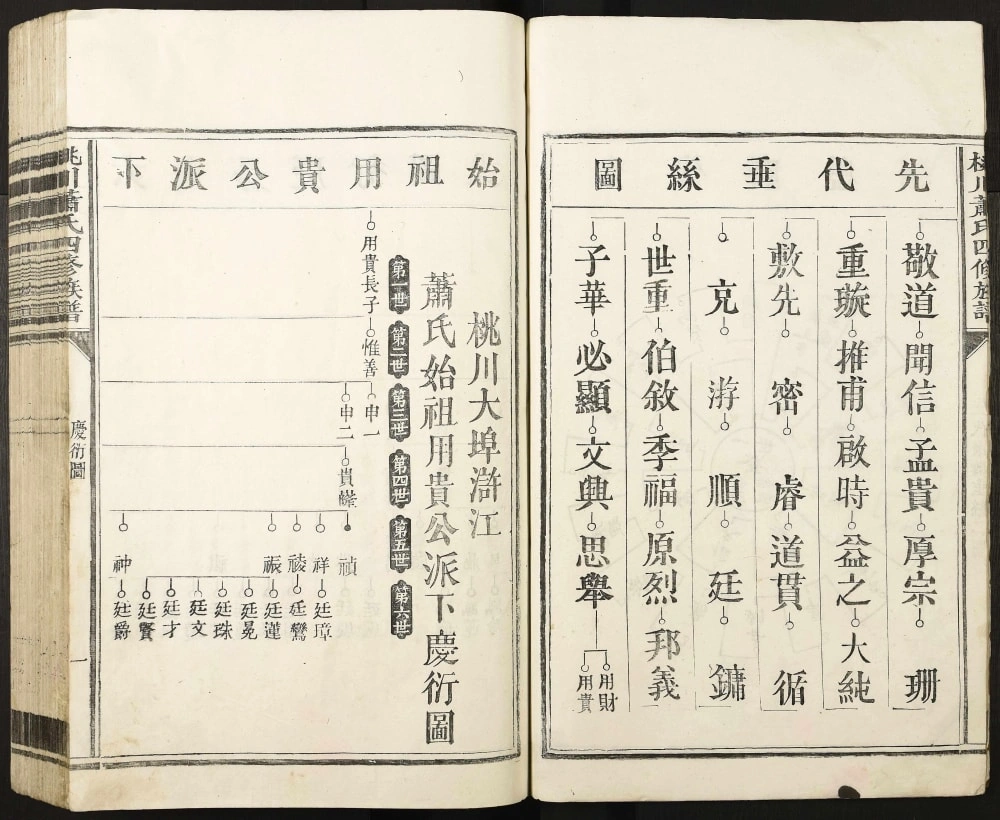 桃川蕭氏四修族譜
先代垂絲圖
敬道 聞信 孟貴 厚宗 珊
重蔟 推甫 啟時 益之 大純
敷先 密 睿 道貫 循
克 游 順 廷 鏞
世重 伯敘 季福 原烈 邦義
子華 必顯 文興 思舉
用財
用貴
始祖用貴公派下
桃川大埠滸江
蕭氏始祖用貴公派下慶衍圖
第一世 第二世 第三世 第四世 第五世 第六世
用貴長子 惟善
申一
申二 貴
禎
祥 廷璋
祾 廷鸞
祳 廷蓮
廷晃
廷珠
廷文
廷才
廷賢
神 廷爵
桃川蕭氏四修族譜
慶衍圖
一